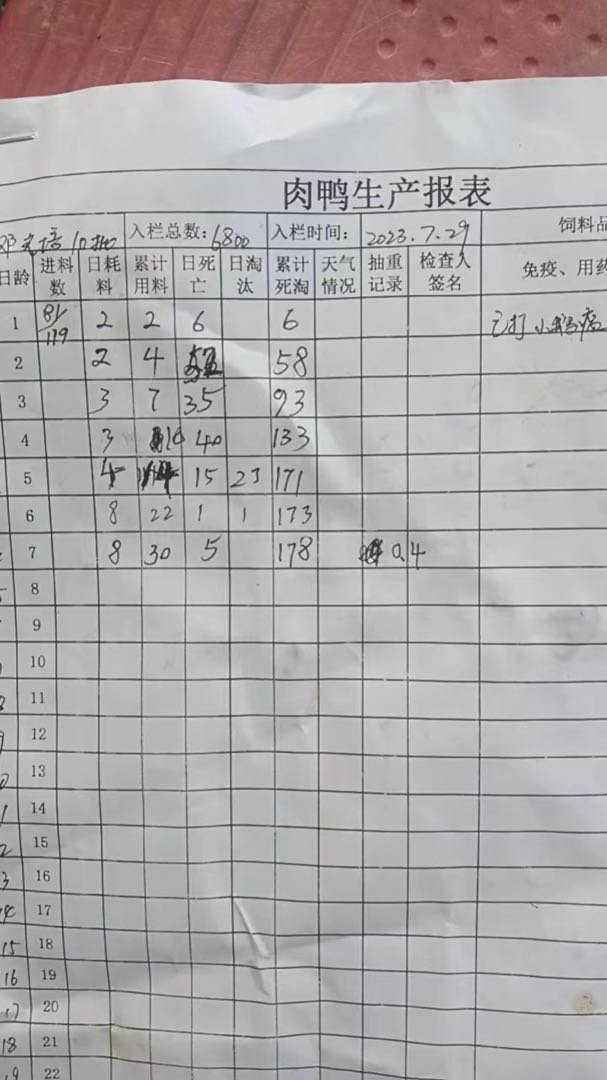 肉鸭生产报表
10批 入栏总数: 6800 入栏时间: 2023.7.29 饲料品
日龄 进料数 日耗料 累计用料 日死亡 日淘汰 累计死淘 天气情况 抽重记录 检查人签名 免疫、用药
1 81/119 2 2 6 6 已打小鸭病
2 2 4 58
3 3 7 35 93
4 3 10 40 133
5 4 14 15 23 171
6 8 22 1 1 173
7 8 30 5 178 0.4
8
9
10
11
12
13
14
15
16
17
15 18
16 19
17 20
18 21
19 22